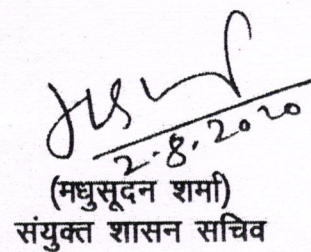 2.8.2020
(मधुसूदन शर्मा)
संयुक्त शासन सचिव